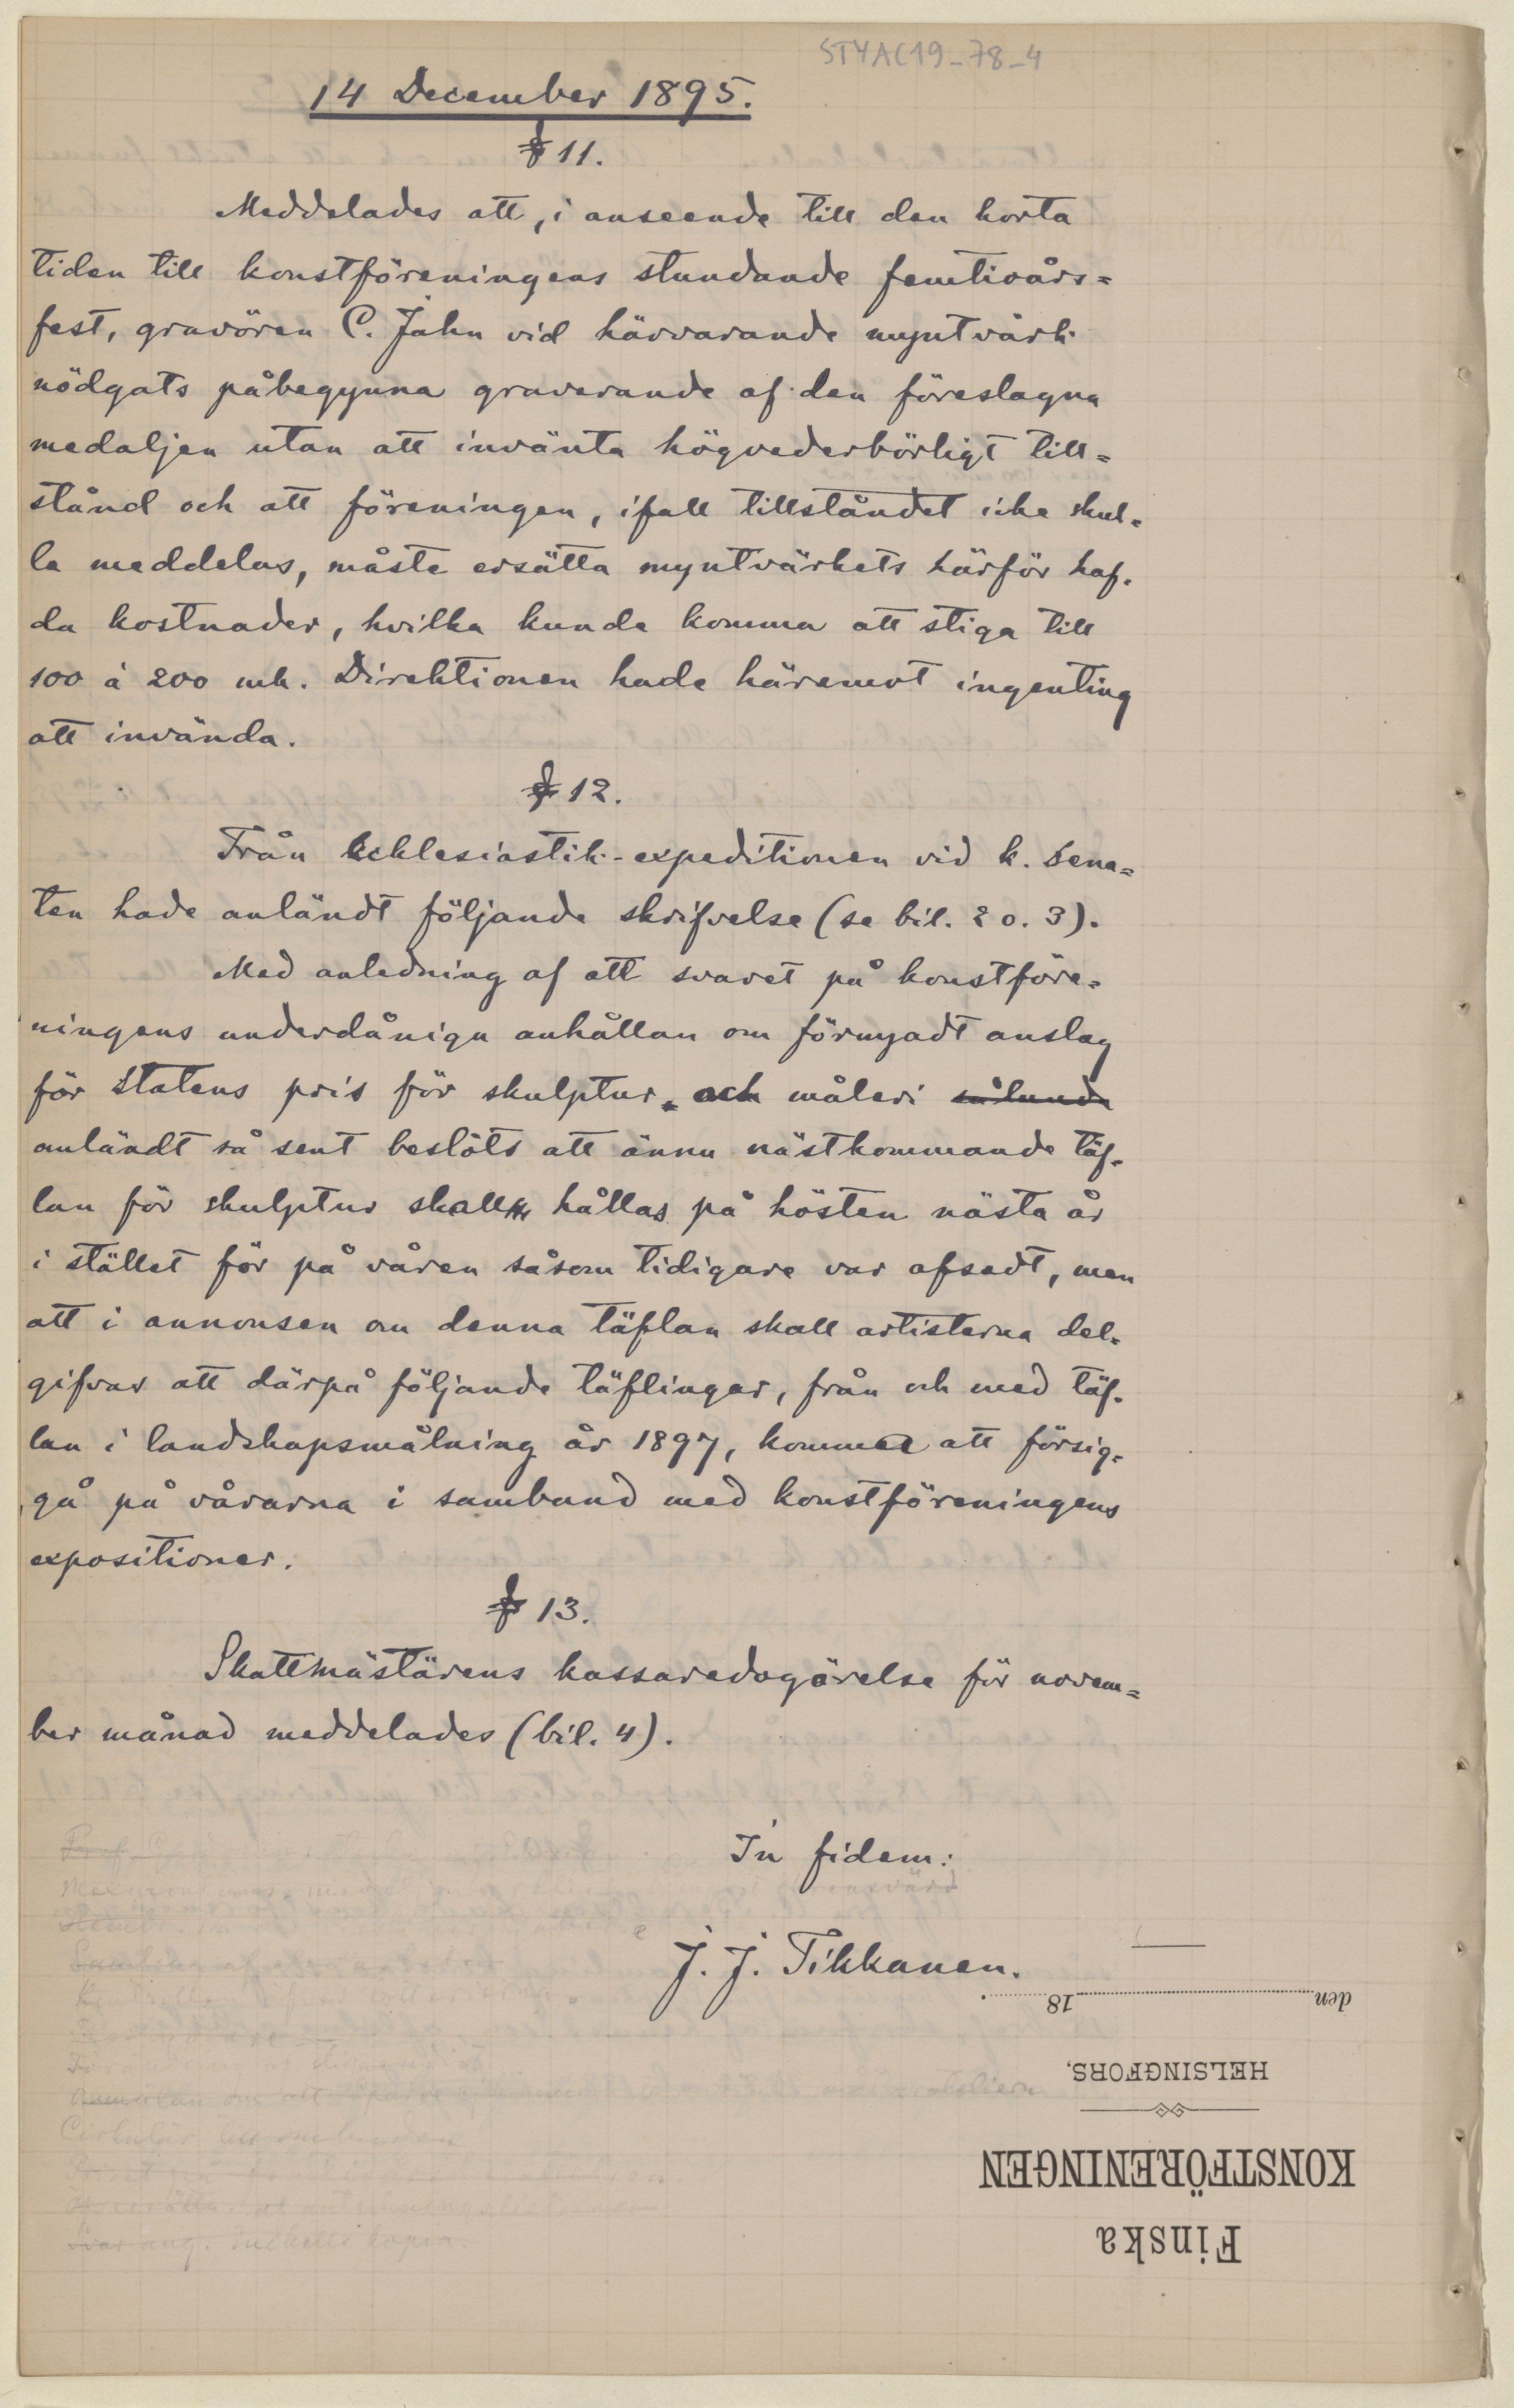 STYAC19_78_4
14 December 1895.
§ 11.
Meddelades att, i anseende till den korta
tiden till konstföreningens stundande femtioårs=
fest, gravören C. Jahn vid härvarande myntvärk
nödgats påbegynna graverande af den föreslagna
medaljen utan att invänta högvederbörligt till=
stånd och att föreningen, ifall tillståndet icke skul=
le meddelas, måste ersätta myntvärkets härför haf=
da kostnader, hvilka kunde komma att stiga till
100 à 200 mk. Direktionen hade häremot ingenting
att invända.
§ 12.
Från Ecklesiastik-expeditionen vid k. sena=
ten hade anländt följande skrifvelse (se bil. 2 o. 3).
Med anledning af att svaret på konstföre=
ningens underdåniga anhållan om förnyadt anslag
för statens pris för skulptur och måleri sålunda
anländt så sent beslöts att ännu nästkommande täf=
lan för skulptur skall hållas på hösten nästa år
i stället för på våren såsom tidigare var afsedt, men
att i annonsen om denna täflan skall artisterna del=
gifvas att därpå följande täflingar, från och med täf=
lan i landskapsmålning år 1897, komma att försig=
gå på vårarna i samband med konstföreningens
expositioner.
§ 13.
Skattmästärens kassaredogörelse för novem=
ber månad meddelades (bil. 4).
In fidem:
J. J. Tikkanen.
Finska
KONSTFÖRENINGEN
HELSINGFORS.
den 18 .